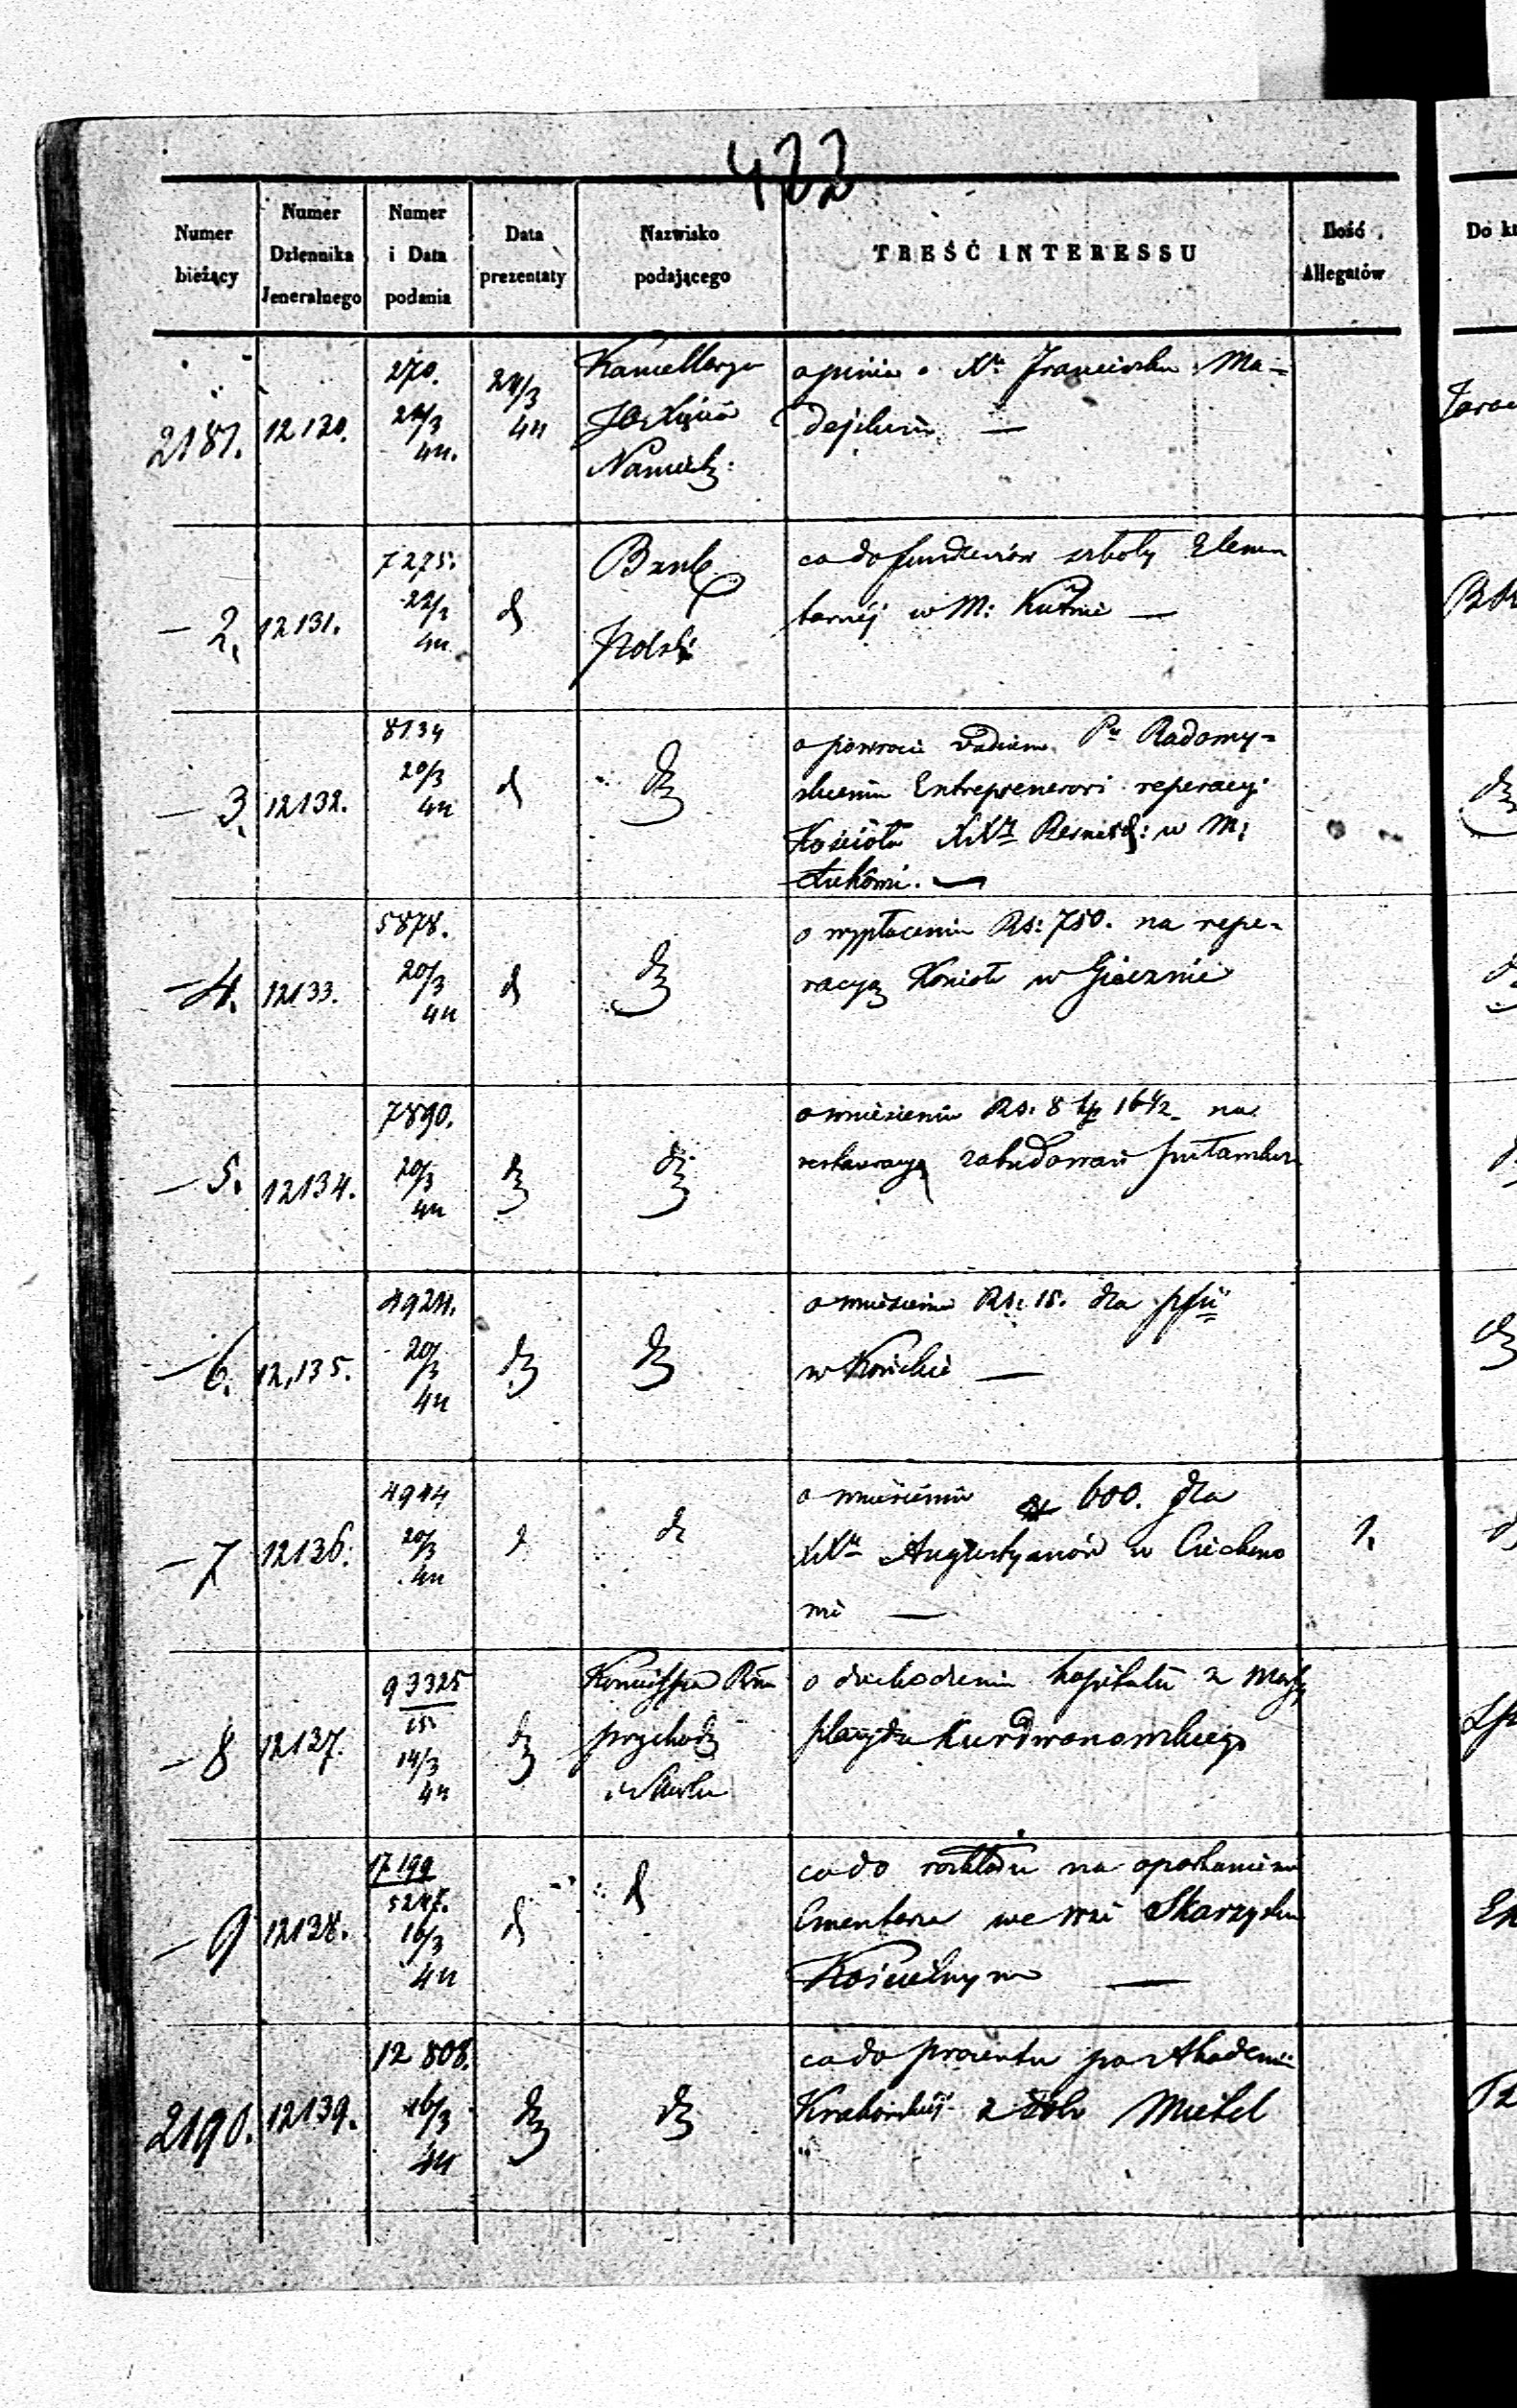 422
Numer bieżący
Numer Dziennika Jeneralnego
Numer i Data podania
Data prezentaty
Nazwisko podającego
TREŚĆ INTERESSU
Ilość Allegatów
Do
2181. 12130. 270. 22/3 44. 24/3 44 Kancellarya
JO. Księcia
Namiest:
opinia o Xu Franciszku Ma=
dejskim —
— 2. 12131. 7275. 22/3 44 d Bank
Polski
co do funduszów szkoły Elemen
tarnéj w M: Kutnie —
— 3. 12132. 8134 20/3 44 d dz
o powrocie vadium Pu Radomy=
skiemu Entreprenerowi reperacyi
Kościoła XXy w M:
Łukowie. —
— 4. 12133. 5878. 20/3 44 d dz
o wypłacenie Rs: 750. na repe=
racyą Kościoła w Giecznie
— 5. 12134. 7890. 20/3 44 dz dz
o wniesieniu Rs. 8 kp 16 1/2 na
restauracyą zabudowań
— 6. 12,135. 4924. 20/3 44 dz dz
o wniesieniu Rs: 15. dla
w Końskie —
— 7 12136. 4944 20/3 44 d dz
o wniesieniu 600. dla
XXu Augustyanów w Ciechano
wie —
1.
— 8 12137. 93325
15 14/3 44 dz Kommissya Rzą
przychod
i Skarbu
o dochodzeniu kapitału z Massy
placyda Kurdwanowskiego
— 9 12138. 17199
5247. 16/3 44 d d
co do rozkładu na oparkanienie
Cmentarza we wsi Skarzysku
Kościelnym —
2190. 12139. 12 808. 16/3 44 dz dz
co do procentu po Akademii
Krakowskiéj z dóbr